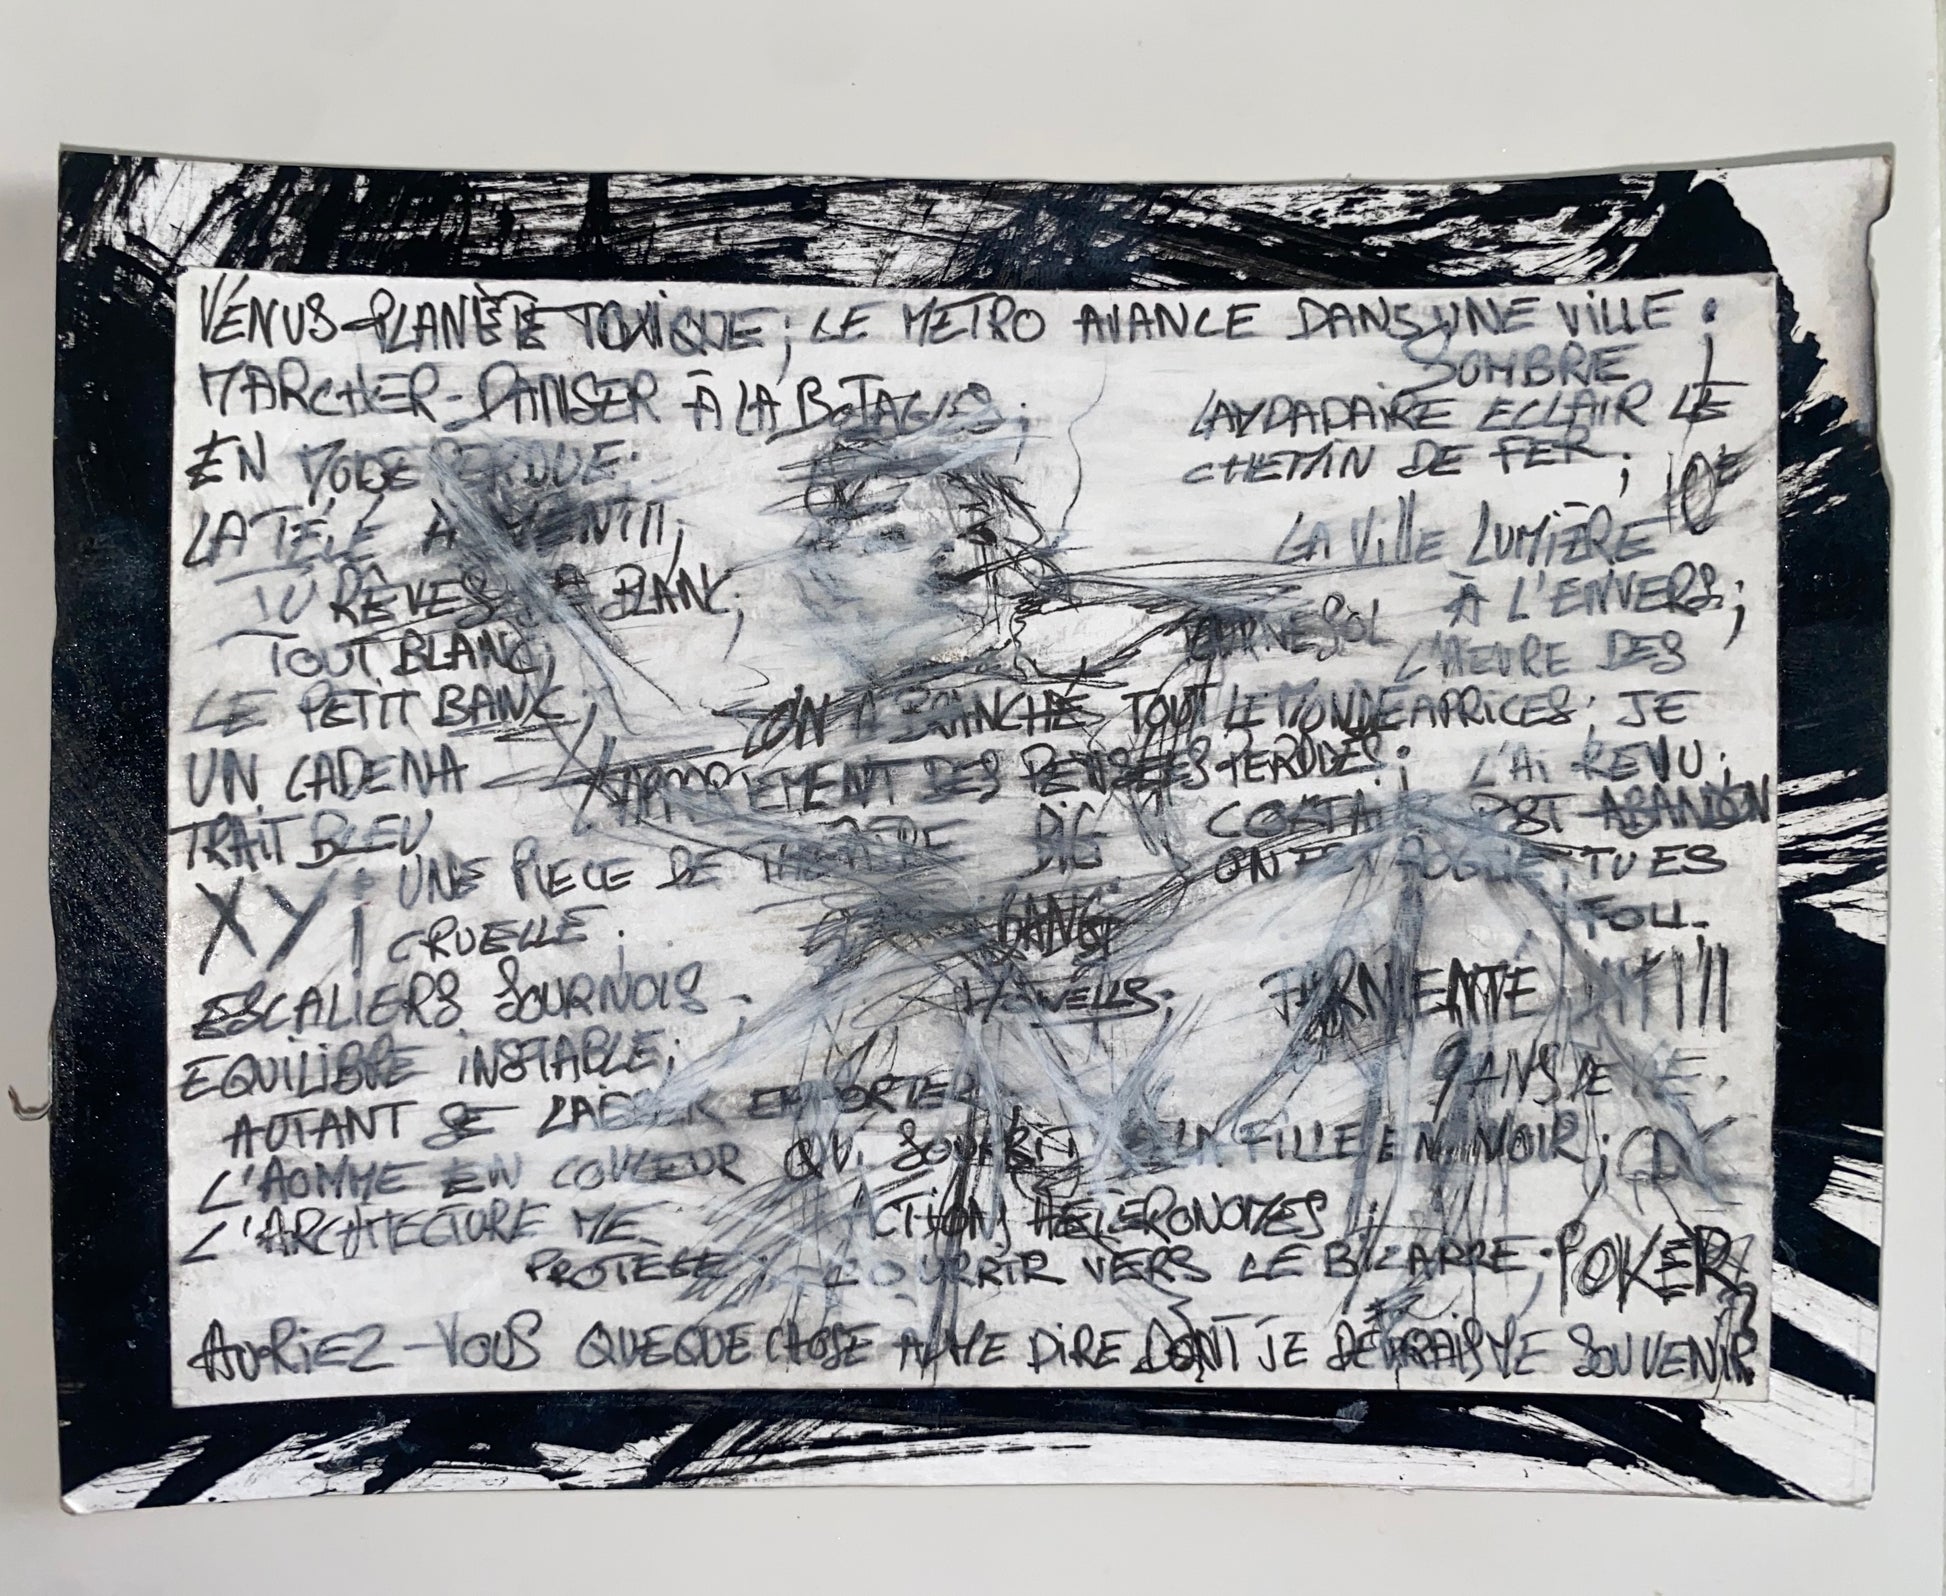 VÉNUS PLANÈTE TOXIQUE; LE METRO AVANCE DANS UNE VILLE
SOMBRE
MARCHER-DANSER À LA
EN MODE
ECLAIR LE
CHEMIN DE FER;
10E
LA TÉLÉ A MENTII;
LA VIlle LUMIÈRE
À L'ENVERS;
TU RÊVES BLANC;
TOURNESOL
TOUT BLANC;
L'HEURE DES
LE PETIT BANC;
ON A BRANCHÉ TOUT LE MONDE
CAPRICES; JE
UN CADENA
DES PENSÉES PERDUES;
L'AI REVU;
TRAIT BLEU
BIG
POST ABANDON
XY; UNE PIECE DE THEATRE
TU ES
CRUELLE.
BANG
FOLL
ESCALIERS SOURNOIS;
EQUILIBRE INSTABLE;
9 ANS DE VIE.
AUTANT SE LAISSER EMPORTER
L'HOMME EN COULEUR QUI SOURIT LA FILLE EN NOIR;
L'ARCHITECTURE ME
ACTIONS HÉTERONOMES;
PROTEGE; COURRIR VERS LE BIZARRE; POKER
AURIEZ-VOUS QUEQUE CHOSE A ME DIRE DONT JE DEVRAIS ME SOUVENIR